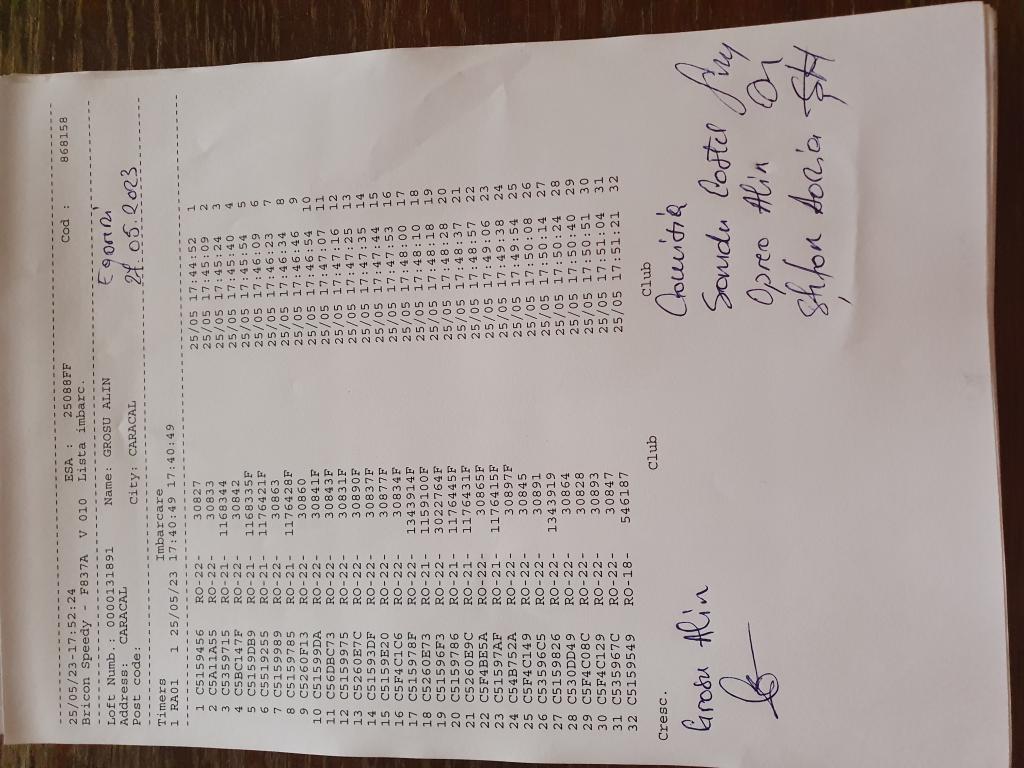 25/05/23-17:52:24 ESA : 25088FF Cod : 868158
Bricon speedy - F837A V 010 Lista imbarc.
Loft Numb. : 0000131891 Name: GROSU ALIN
Address: CARACAL City: CARACAL
Post code: 27.05.2023
Timers Imbarcare
1 RA01 1 25/05/23 17:40:49 17:40:49
1 C5159456 RO-22- 30827 25/05 17:44:52 1
2 C5A11A55 RO-22- 30833 25/05 17:45:09 2
3 C5359715 RO-21- 1168344 25/05 17:45:24 3
4 C5BC147F RO-22- 30842 25/05 17:45:40 4
5 C5159DB9 RO-21- 1168335F 25/05 17:45:54 5
6 C5519255 RO-21- 1176421F 25/05 17:46:09 6
7 C5159989 RO-22- 30863 25/05 17:46:23 7
8 C5159785 RO-21- 1176428F 25/05 17:46:34 8
9 C5260F13 RO-22- 30860 25/05 17:46:46 9
10 C51599DA RO-22- 30841F 25/05 17:46:54 10
11 C56DBC73 RO-22- 30843F 25/05 17:47:07 11
12 C5159975 RO-22- 30831F 25/05 17:47:16 12
13 C5260E7C RO-22- 30890F 25/05 17:47:25 13
14 C51593DF RO-22- 30837F 25/05 17:47:35 14
15 C5159E20 RO-22- 30877F 25/05 17:47:44 15
16 C5F4C1C6 RO-22- 30834F 25/05 17:47:53 16
17 C515978F RO-22- 1343914F 25/05 17:48:00 17
18 C5260E73 RO-21- 1159100F 25/05 17:48:10 18
19 C51596F3 RO-22- 3022764F 25/05 17:48:18 19
20 C5159786 RO-21- 1176445F 25/05 17:48:28 20
21 C5260E9C RO-21- 1176431F 25/05 17:48:37 21
22 C5F4BE5A RO-22- 30865F 25/05 17:48:57 22
23 C51597AF RO-21- 1176415F 25/05 17:49:06 23
24 C54B752A RO-22- 30897F 25/05 17:49:38 24
25 C5F4C149 RO-22- 30845 25/05 17:49:54 25
26 C53596C5 RO-22- 30891 25/05 17:50:08 26
27 C5159826 RO-22- 1343919 25/05 17:50:14 27
28 C530DD49 RO-22- 30864 25/05 17:50:24 28
29 C5F4C08C RO-22- 30828 25/05 17:50:40 29
30 C5F4C129 RO-22- 30893 25/05 17:50:51 30
31 C535967C RO-22- 30847 25/05 17:51:04 31
32 C5159549 RO-18- 546187 25/05 17:51:21 32
Cresc. Club Club
Grosu Alin
Sandu Costel
Oprea Alin